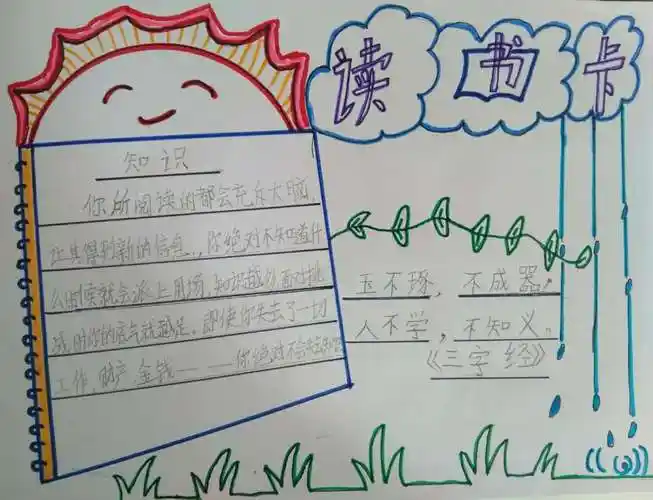 读书卡
知识
你所阅读的都会充斥大脑，
让其得到新的信息..，你绝对不知道什
么时候就会派上用场，知识越多，面对挑
战时你的底气就越足，即使你失去了一切
工作，财产，金钱——你绝对不会失去
玉不琢，不成器；
人不学，不知义。
《三字经》